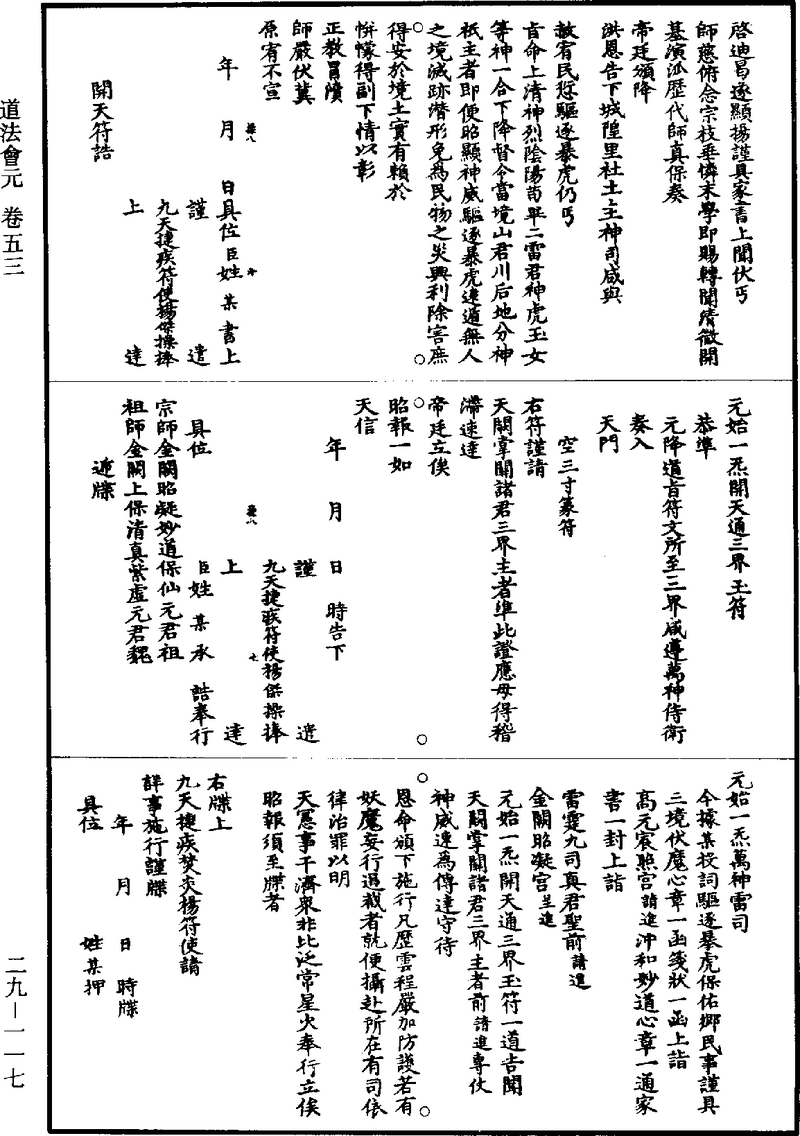 啓迪昌遂顯揚謹具家書上聞伏丐
師慈俯念宗枝垂憐末學即賜轉聞清微開
基演派歷代師真保奏
帝廷頒降
洪恩告下城隍里社土主神司咸與
赦宥民愆驅逐暴虎仍丐
旨命上清神烈陰陽荀畢二雷君神虎玉女
等神一合下降督令當境山君川后地分神
祇主者即便昭顯神威驅逐暴虎遠遁無人
之境滅跡潛形免爲民物之災興利除害庶
得安於境土實有賴於
帡幪得副下情以彰
正教冒瀆
師嚴伏冀
原宥不宣
年 月 日具位臣姓某書上
謹 遣
九天捷疾符使楊傑操捧
上 達
開天符誥
元始一炁開天通三界玉符
恭準
元降道旨符文所至三界咸遵萬神侍衛
奏入
天門
空三寸篆符
右符謹請
天關掌關諸君三界主者準此證應毋得稽
滯速達
帝廷立俟
昭報一如
天信
年 月 日 時告下
謹 遣
九天捷疾符使楊傑操捧
上 達
具位 臣姓某承誥奉行
宗師金闕昭凝妙道保仙元君祖
祖師金闕上保清真紫虛元君魏
遞牒
元始一炁萬神雷司
今據某投詞驅逐暴虎保佑鄉民事謹具
三境伏魔心章一函箋狀一函上詣
高元宸照宮請進沖和妙道心章一通家
書一封上詣
雷霆九司真君聖前請進
金闕昭凝宮呈進
元始一炁開天通三界玉符一道告聞
天關掌關諸君三界主者前請進專伏
神威速爲傳達守待
恩命頒下施行凡歷雲程嚴加防護若有
妖魔妄行遏截者就便攝赴所在有司依
律治罪以明
天憲事干濟衆非比泛常星火奉行立俟
昭報須至牒者
右牒上
九天捷疾焚炎楊符使請
詳事施行謹牒
年 月 日 時牒
具位 姓某押
道法會元 卷五三
二九—一一七